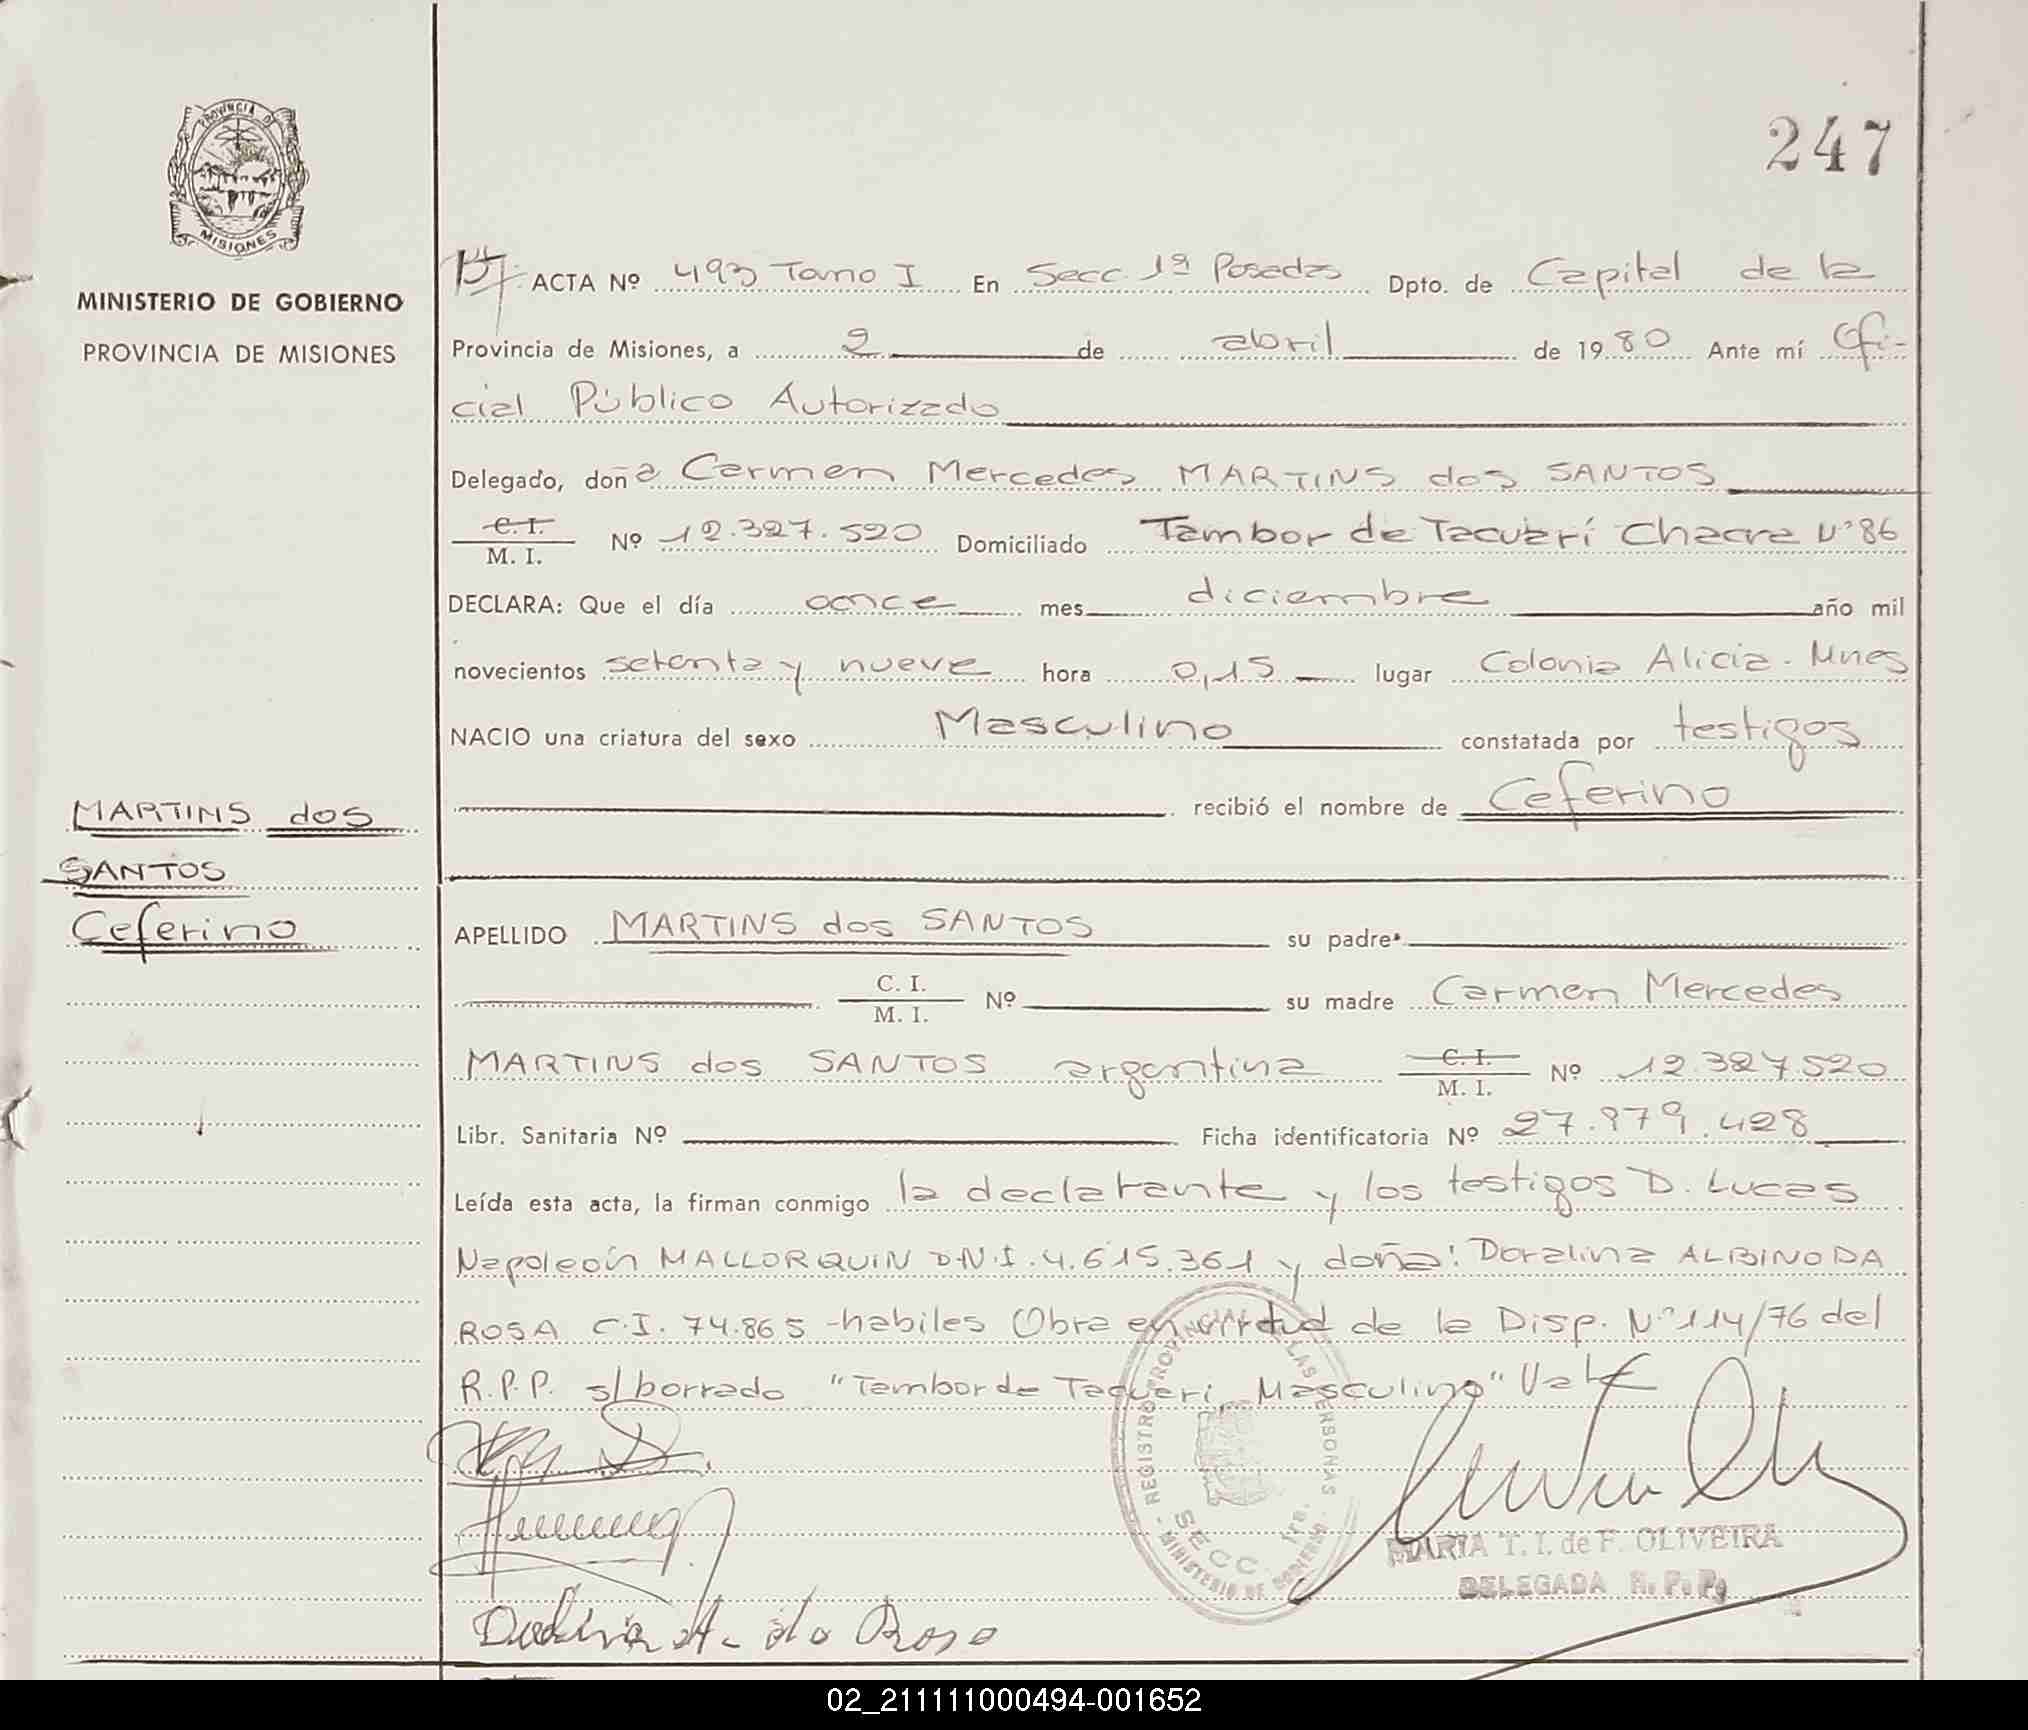 247
PROVINCIA DE
MISIONES
MINISTERIO DE GOBIERNO
PROVINCIA DE MISIONES
ACTA Nº 493 Tomo I En Secc. 1ª Posadas Dpto. de Capital de la
Provincia de Misiones, a 2 de abril de 1980 Ante mí Ofi-
cial Público Autorizado
Delegado, doña Carmen Mercedes MARTINS dos SANTOS
C.I.
M. I. Nº 12.327.520 Domiciliado Tambor de Tacuarí Chacra Nº 86
DECLARA: Que el día once mes diciembre año mil
novecientos setenta y nueve hora 0,15 lugar Colonia Alicia - Mnes
NACIO una criatura del sexo Masculino constatada por testigos
recibió el nombre de Ceferino
MARTINS dos
SANTOS
Ceferino
APELLIDO MARTINS dos SANTOS su padre
C. I.
M. I. Nº su madre Carmen Mercedes
MARTINS dos SANTOS argentina C. I.
M. I. Nº 12.327.520
Libr. Sanitaria Nº Ficha identificatoria Nº 27.979.428
Leída esta acta, la firman conmigo la declarante y los testigos D. Lucas
Napoleón MALLORQUIN D.N.I. 4.615.361 y doña: Doralina ALBINO DA
ROSA C.I. 74.865 -habiles Obra en virtud de la Disp. Nº 114/76 del
R.P.P. s/borrado "Tambor de Taquari, Masculino" Vale
REGISTRO PROVINCIAL DE LAS PERSONAS
SECC. 1ra.
- MINISTERIO DE GOBIERNO -
MARIA T. I. de F. OLIVEIRA
DELEGADA R. P. P.
A. da Rosa
02_211111000494-001652